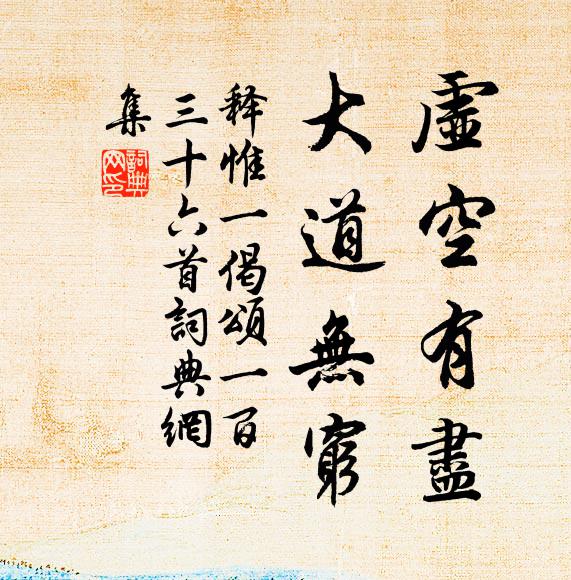 虛空有盡
大道無窮
释惟一偈頌一百
三十六首詞典網
集
詞典網印